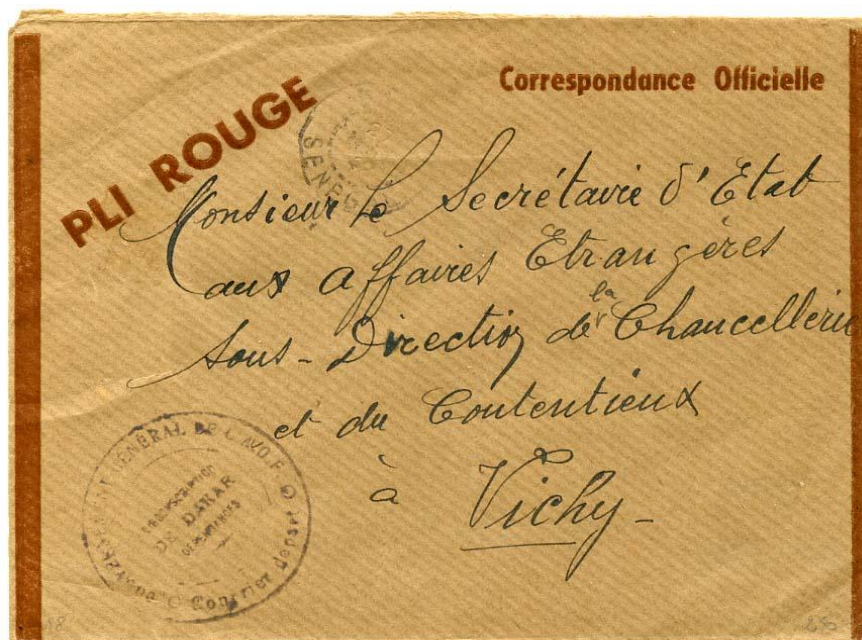 Correspondance Officielle
PLI ROUGE
SENEG
Monsieur Le Secrétaire d'Etat
aux Affaires Etrangères
la
Sous-Direction de Chancellerie
et du Contentieux
à
Vichy-
GENERAL DE L'A.O.F.
CIRCONSCRIPTION
DE DAKAR
ET DEPENDANCES
Courrier départ